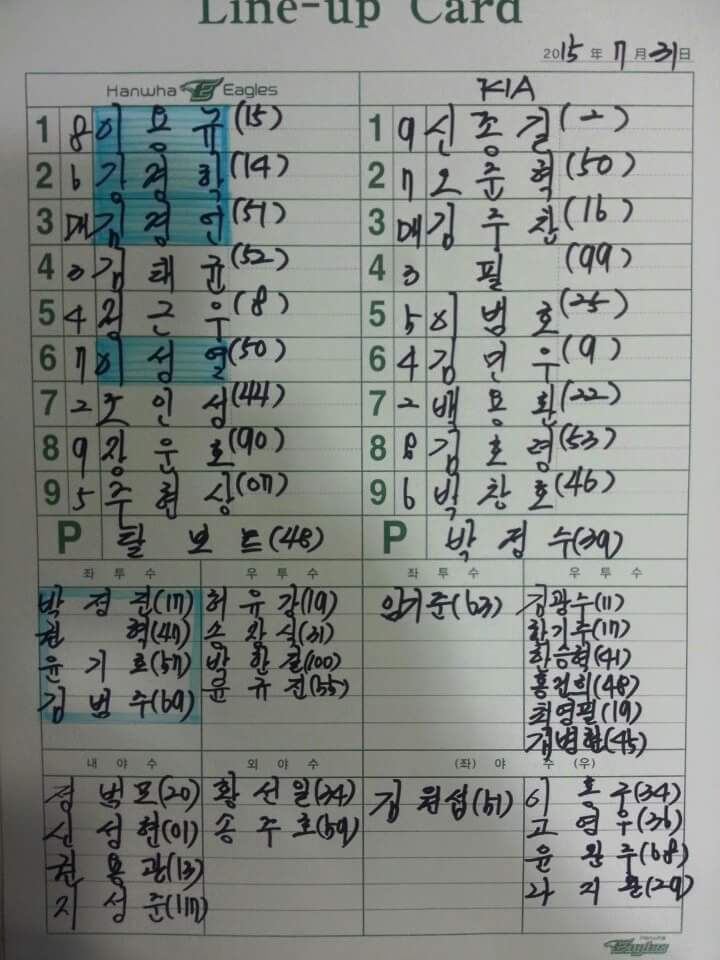 Line-up Card
2015年 7月 31日
Hanwha Eagles KIA
1 8 이용규(15) 1 9 신종길(2)
2 6 강경학(14) 2 7 오준혁(50)
3 DH 김경언(51) 3 DH 김주찬(16)
4 3 김태균(52) 4 3 필(99)
5 4 정근우(8) 5 5 이범호(25)
6 7 이성열(50) 6 4 김민우(9)
7 2 조인성(44) 7 2 백용환(22)
8 9 장운호(90) 8 8 김호령(53)
9 5 주현상(07) 9 6 박찬호(46)
P 탈보트(48) P 박정수(39)
좌투수 우투수 좌투수 우투수
박정진(17) 허유강(19) 임기준(63) 김광수(11)
권혁(47) 송창식(31) 한기주(17)
윤기호(57) 박한길(100) 한승혁(41)
김범수(69) 윤규진(55) 홍건희(48)
최영필(19)
김병현(45)
내야수 외야수 (좌)야수(우)
정범모(20) 황선일(34) 김원섭(51) 이홍구(34)
신성현(01) 송주호(59) 고영우(36)
권용관(13) 윤완주(68)
지성준(117) 나지완(29)
Eagles